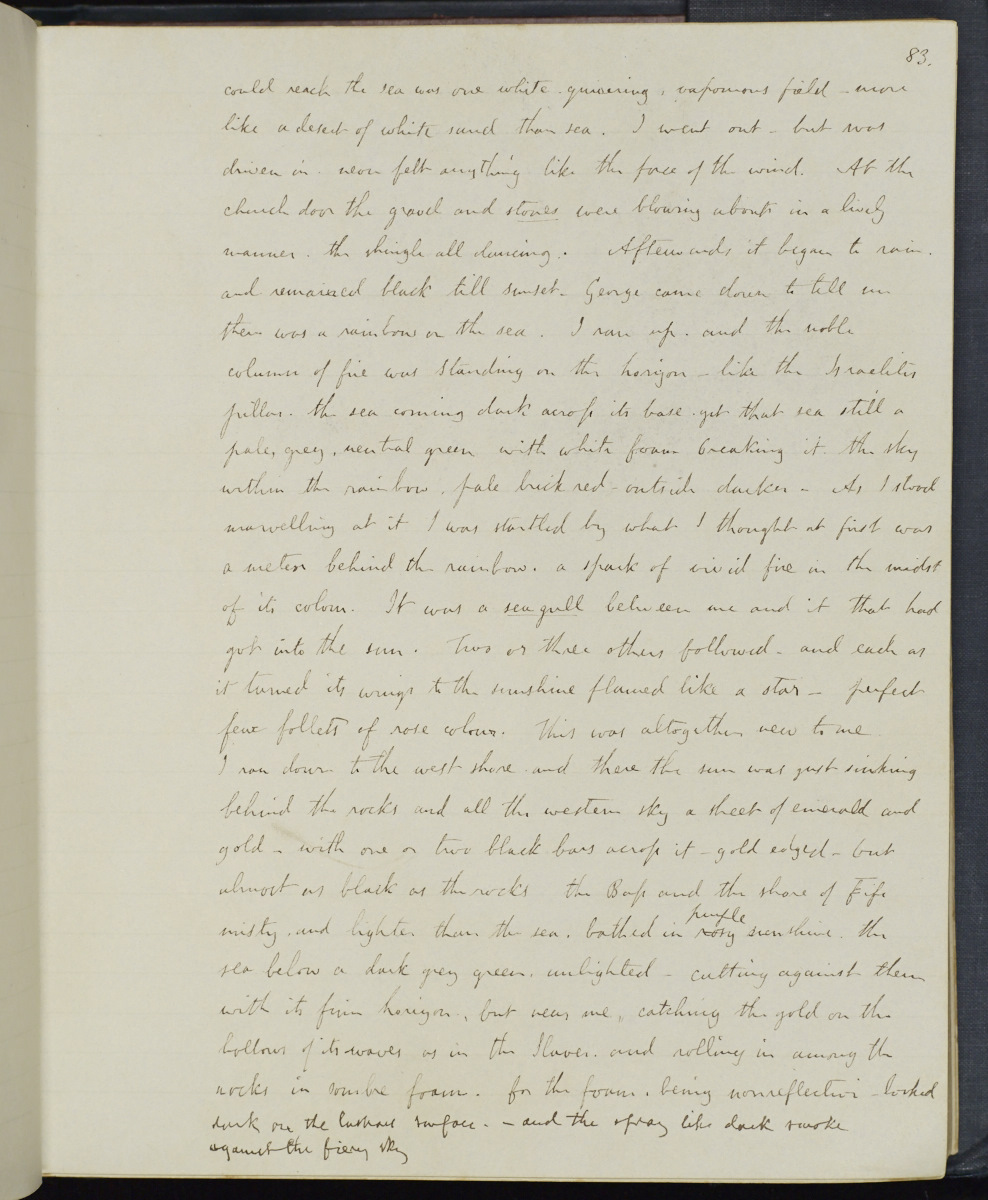 83.
could reach the sea was one white quivering, vaporous field - more
like a desert of white sand than sea. I went out - but was
driven in. never felt anything like the force of the wind. At the
church door the gravel and stones were blowing about in a lively
manner. the shingle all dancing. Afterwards it began to rain.
and remained black till sunset. George came down to tell me
there was a rainbow on the sea. I ran up. and the noble
column of fire was standing on the horizon - like the Israelites
pillar. the sea coming dark across its base. yet that sea still a
pale, grey, neutral green with white foam breaking it. the sky
within the rainbow, pale brick red - outside darker - As I stood
marvelling at it I was startled by what I thought at first was
a meteor behind the rainbow. a spark of vivid fire in the midst
of its colour. It was a seagull between me and it that had
got into the sun. Two or three others followed - and each as
it turned its wings to the sunshine flamed like a star - perfect
feux follets of rose colour. This was altogether new to me.
I ran down to the west shore and there the sun was just sinking
behind the rocks and all the western sky a sheet of emerald and
gold - with one or two black bars across it - gold edged - but
almost as black as the rocks the Bass and the shore of Fife
misty, and lighter than the sea, bathed in rosy purple sunshine. the
sea below a dark grey green, unlighted - cutting against them
with its firm horizon, but near me, catching the gold on the
hollows of its waves as in the Slaver. and rolling in among the
rocks in sombre foam. for the foam, being nonreflective - looked
dark on the lustrous surface. - and the spray like dark smoke
against the fiery sky